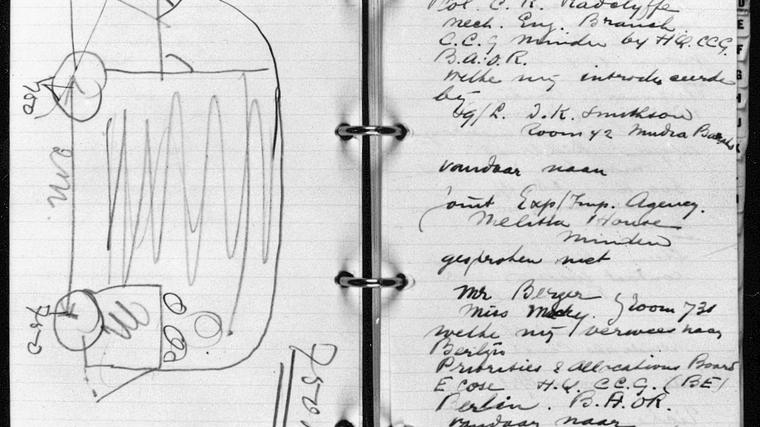 750
750
7501
Col. C. R. Radclyffe
Mech. Eng. Branch
C.C.G Minden by H.Q. CCG.
B.A.O.R.
welke mij introduceerde
bij
J.K. Smithson
Room 42 Mudra
vandaar naar
Joint Exp/Imp. Agency.
Melitta House
Minden
gesproken met
Mr Berger
Miss } Room 731
welke mij verwees naar
Berlijn
Priorities & Allocations Board
Ecosc H.Q. C.C.G. (BE)
Berlin. B.A.O.R.
vandaar naar
D
E
F
G
H